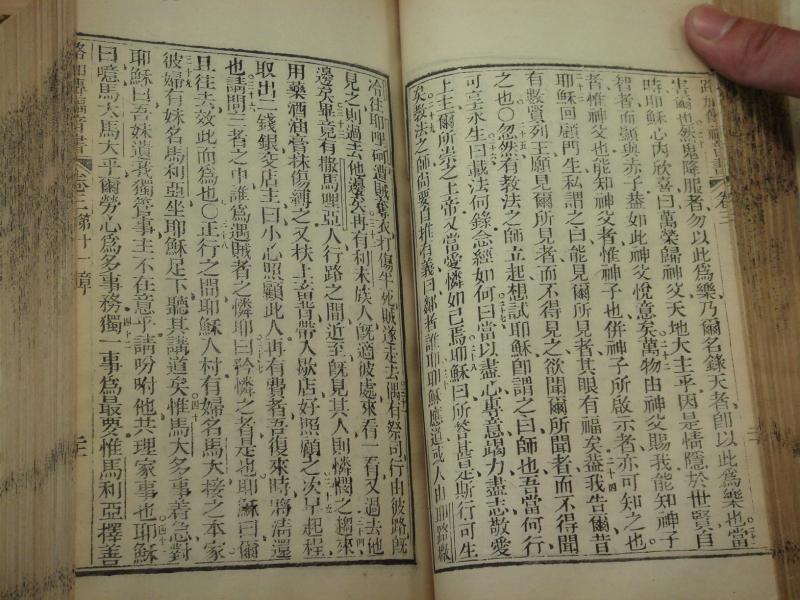 害爾也然鬼降服者勿以此為樂乃爾名錄天者卽以此為樂也當
時耶穌心內欣喜曰萬榮歸神父天地大主乎因是情隱於世賢自
智者而顯與赤子蓋如此神父悅意矣萬物由神父賜我能知神子
者惟神父也能知神父者惟神子也併神子所啟示者亦可知之也
耶穌回顧門生私謂之曰能見爾所見者其眼有福矣蓋我告爾昔
有數賢列王願見爾所見者而不得見之欲聞爾所聞者而不得聞
之也〇忽然有教法之師立起想試耶穌卽謂之曰師也吾當何行
可享永生曰載法何錄念經如何曰當以盡心專意竭力盡志敬愛
上主爾所崇之上帝又當愛憐如己焉耶穌曰所答甚是斯行可生
矣教法之師尚要自推有義曰鄰者誰耶耶穌應道或人由耶路撒
冷往耶哩哥遭賊奪衣打傷半死賊遂走去偶有祭司行由彼路旣
見之則過去他邊矣再有利未族人旣適彼處來看一看又過去他
邊矣畢竟有撒馬哩亞人行路之間近至旣見其人則憐憫之趨來
用藥酒油膏抹傷縛之又扶上畜背帶人歇店好照顧之次早起程
取出二錢銀交店主曰小心照顧此人再有費者吾復來時將清還
也請問三者之中誰為遇賊者之憐耶曰矜憐之者是也耶穌曰爾
且往去效此而為也〇正行之間耶穌人村有婦名馬大接之本家
彼婦有妹名馬利亞坐耶穌足下聽其講道矣惟馬大多事着急對
耶穌曰吾妹遺我獨管事主不在意乎請吩咐他共理家事也耶穌
曰噫馬大馬大乎爾勞心為多事務獨一事為最要惟馬利亞擇善
路加傳福音書 卷三 第十一章